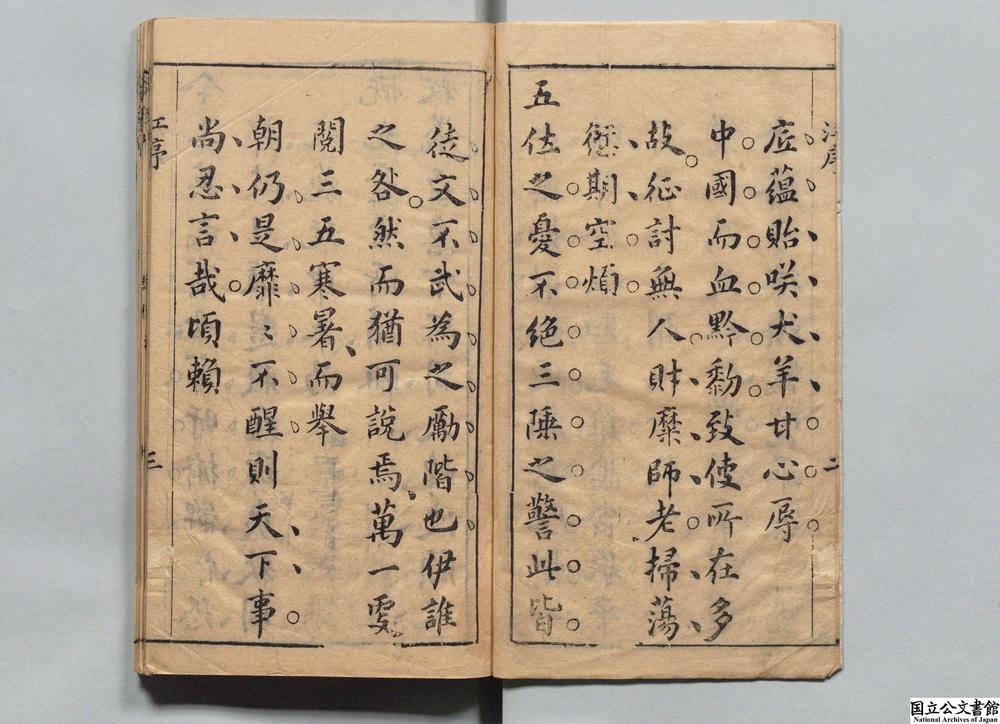 底蘊貽咲犬羊甘心辱
中國而血黔黎致使所在多
故征討無人財糜師老掃蕩
愆期空煩
五位之憂不絕三陲之警此皆
徒文不武為之勵階也伊誰
之咎然而猶可說焉萬一更
閱三五寒暑而舉
朝仍是靡〻不醒則天下事
尚忍言哉頃賴
江序
三
国立公文書館
National Archives of Japan